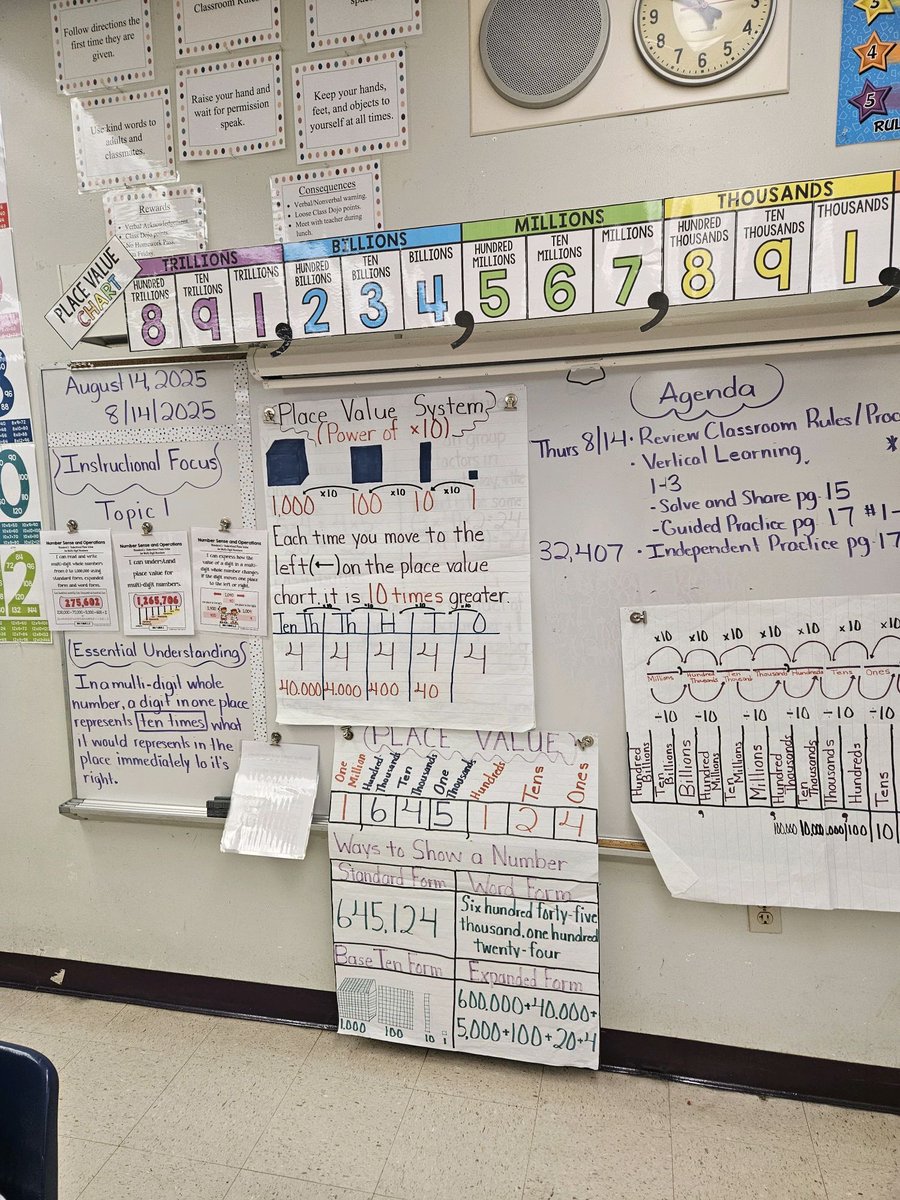 Follow directions the
first time they are
given.
Classroom Rules
Use kind words to
adults and
classmates.
Raise your hand and
wait for permission
speak.
Keep your hands,
feet, and objects to
yourself at all times.
Rewards
Verbal Acknowledgment
Class Dojo points.
No Homework Pass
Friday
Consequences
• Verbal/Nonverbal warning.
• Loose Class Dojo points.
• Meet with teacher during
lunch.
9 3
8 4
7 6 5
5
4
5
RUL
PLACE VALUE
CHART
TRILLIONS
HUNDRED TRILLIONS
TEN TRILLIONS
TRILLIONS
8 9 1,
BILLIONS
HUNDRED BILLIONS
TEN BILLIONS
BILLIONS
2 3 4,
MILLIONS
HUNDRED MILLIONS
TEN MILLIONS
MILLIONS
5 6 7,
THOUSANDS
HUNDRED THOUSANDS
TEN THOUSANDS
THOUSANDS
8 9 1,
August 14, 2025
8/14/2025
Instructional Focus
Topic 1
Number Sense and Operations
I can read and write
multi-digit whole numbers
from 0 to 1,000,000 using
standard form, expanded
form and word form.
275,602
Number Sense and Operations
I can understand
place value for
multi-digit numbers.
1,265,706
Number Sense and Operations
I can express how the
value of a digit in a multi-
digit whole number changes
if the digit moves one place
to the left or right.
Essential Understanding
In a multi-digit whole
number, a digit in one place
represents ten times what
it would represents in the
place immediately to it's
right.
Place Value System
(Power of x10)
x10 x10 x10
1,000 100 10 1
Each time you move to the
left (←) on the place value
chart, it is 10 times greater.
Ten Th Th H T O
4 4 4 4 4
40.000 4.000 400 40
PLACE VALUE
One Million
Hundred Thousands
Ten Thousands
One Thousands
Hundreds
Tens
Ones
1 6 4 5, 1 2 4
Ways to Show a Number
Standard Form
645,124
Word Form
Six hundred forty-five
thousand, one hundred
twenty-four
Base Ten Form
1,000 100 10 1
Expanded Form
600.000+40.000+
5,000+100+20+4
Agenda
Thurs 8/14 • Review Classroom Rules/Proc
• Vertical Learning *
1-3
-Solve and Share pg. 15
-Guided Practice pg. 17 #1-
32,407 • Independent Practice pg. 17
x10 x10 x10 x10 x10 x10 x10
Millions Hundred Thousands Ten Thousand Thousands Hundreds Tens Ones
÷10 ÷10 ÷10 ÷10 ÷10 ÷10
Hundred Billions
Ten Billions
Billions
Hundred Millions
Ten Millions
Millions
Hundred Thousands
Ten Thousands
Thousands
Hundreds
Tens
100 10